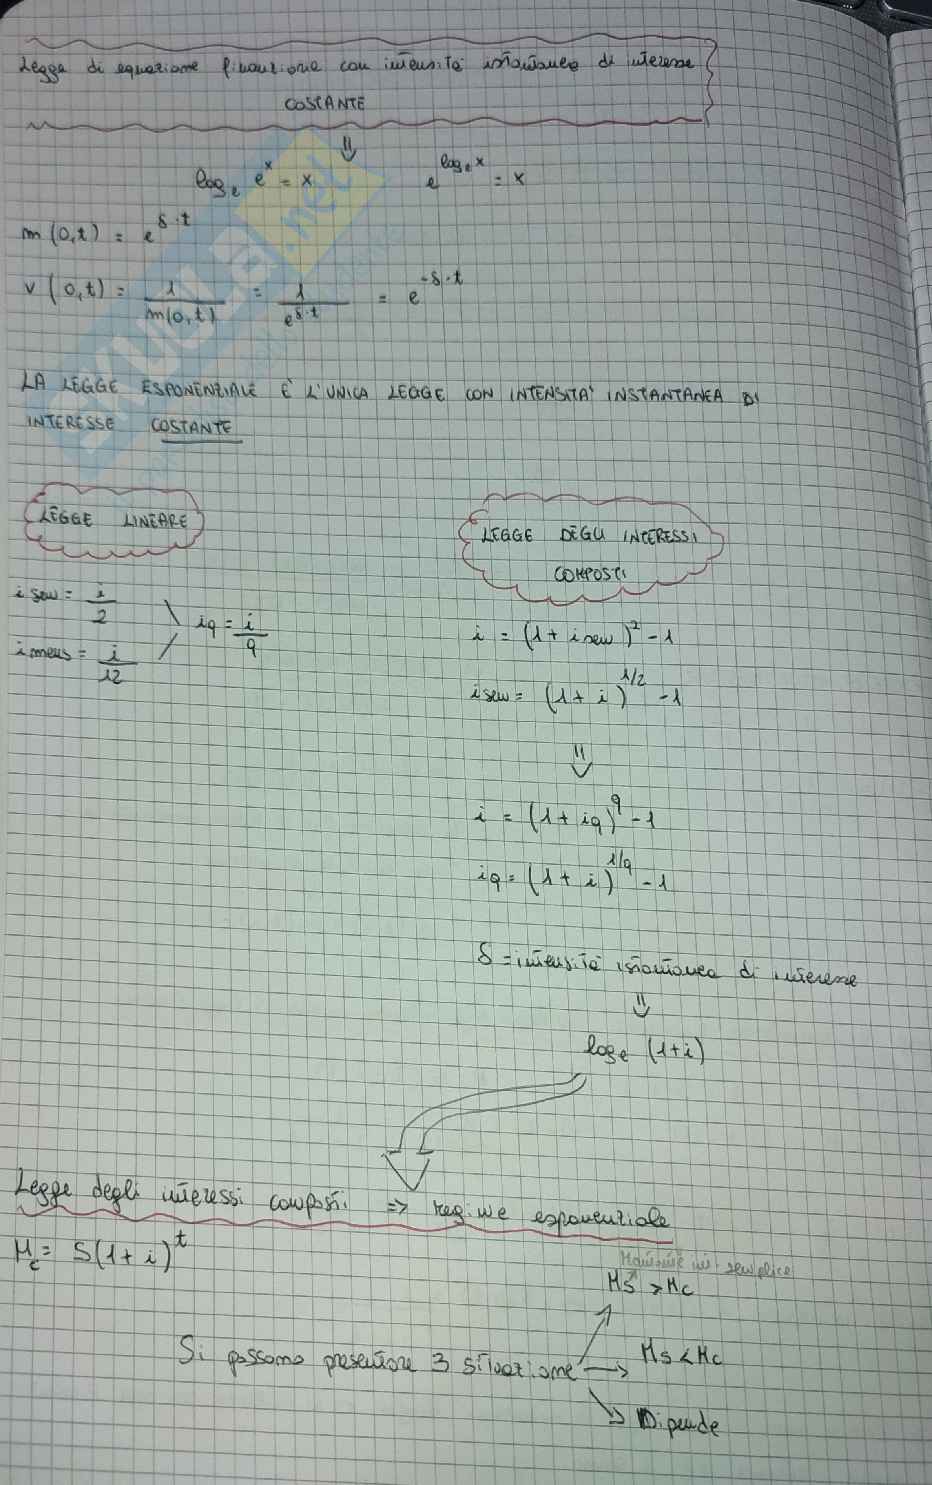 Legge di equazione finanziaria con intensità istantanea di interesse
COSTANTE
⇓
log_e e^x = x    e^(log_e x) = x
m(0,t) = e^(δ·t)
v(0,t) = 1/m(0,t) = 1/e^(δ·t) = e^(-δ·t)
LA LEGGE ESPONENZIALE È L'UNICA LEGGE CON INTENSITA' INSTANTANEA DI
INTERESSE COSTANTE
LEGGE LINEARE
i sem = i/2
i mens = i/12
iq = i/q
LEGGE DEGLI INTERESSI
COMPOSTI
i = (1 + i sem)^2 - 1
i sem = (1 + i)^(1/2) - 1
⇓
i = (1 + iq)^q - 1
iq = (1 + i)^(1/q) - 1
δ = intensità istantanea di interesse
⇓
log_e (1+i)
Legge degli interessi composti => regime esponenziale
M_c = S(1 + i)^t
Montante int. semplice
Ms > Mc
Si possono presentare 3 situazione → Ms < Mc
Dipende
SKUOLA.net